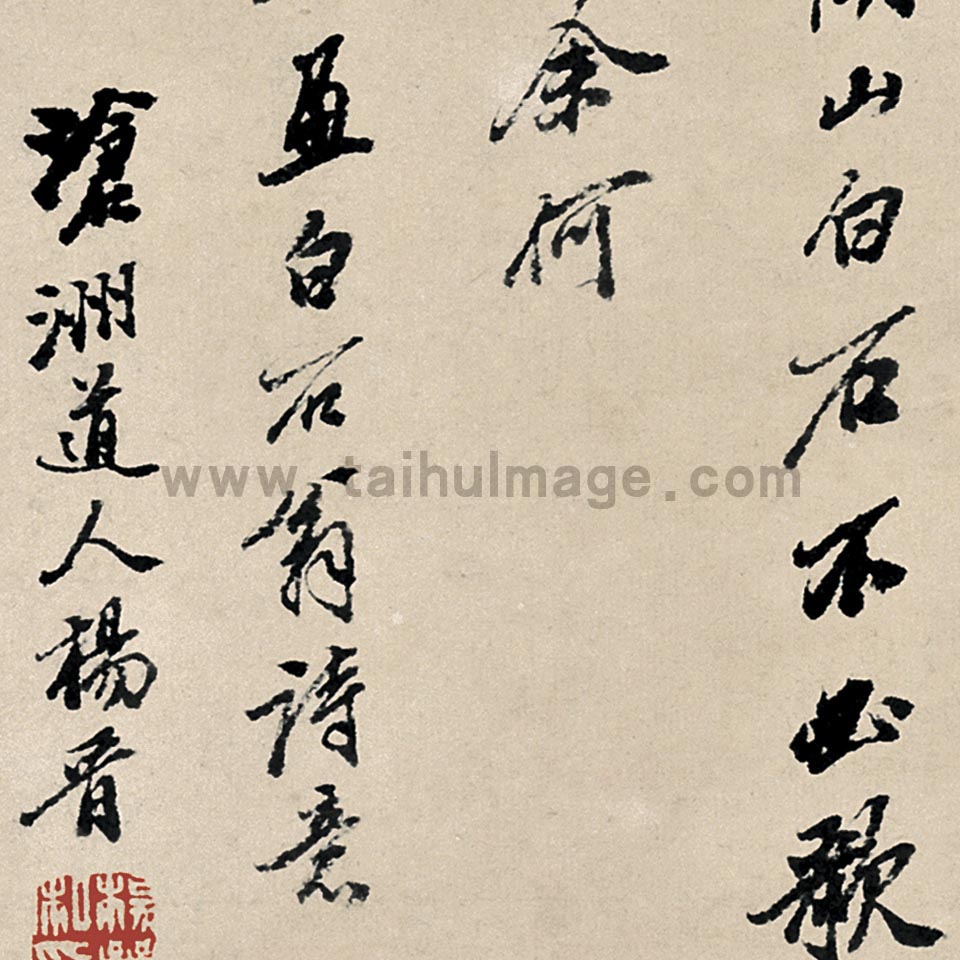 山白石不必歌
余何
畫白石翁詩意
滄洲道人楊晉
www.taihuImage.com